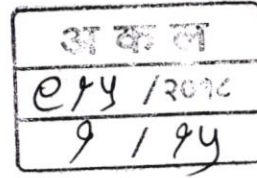 अ क ल
९१५ /२०१८
१ / १५